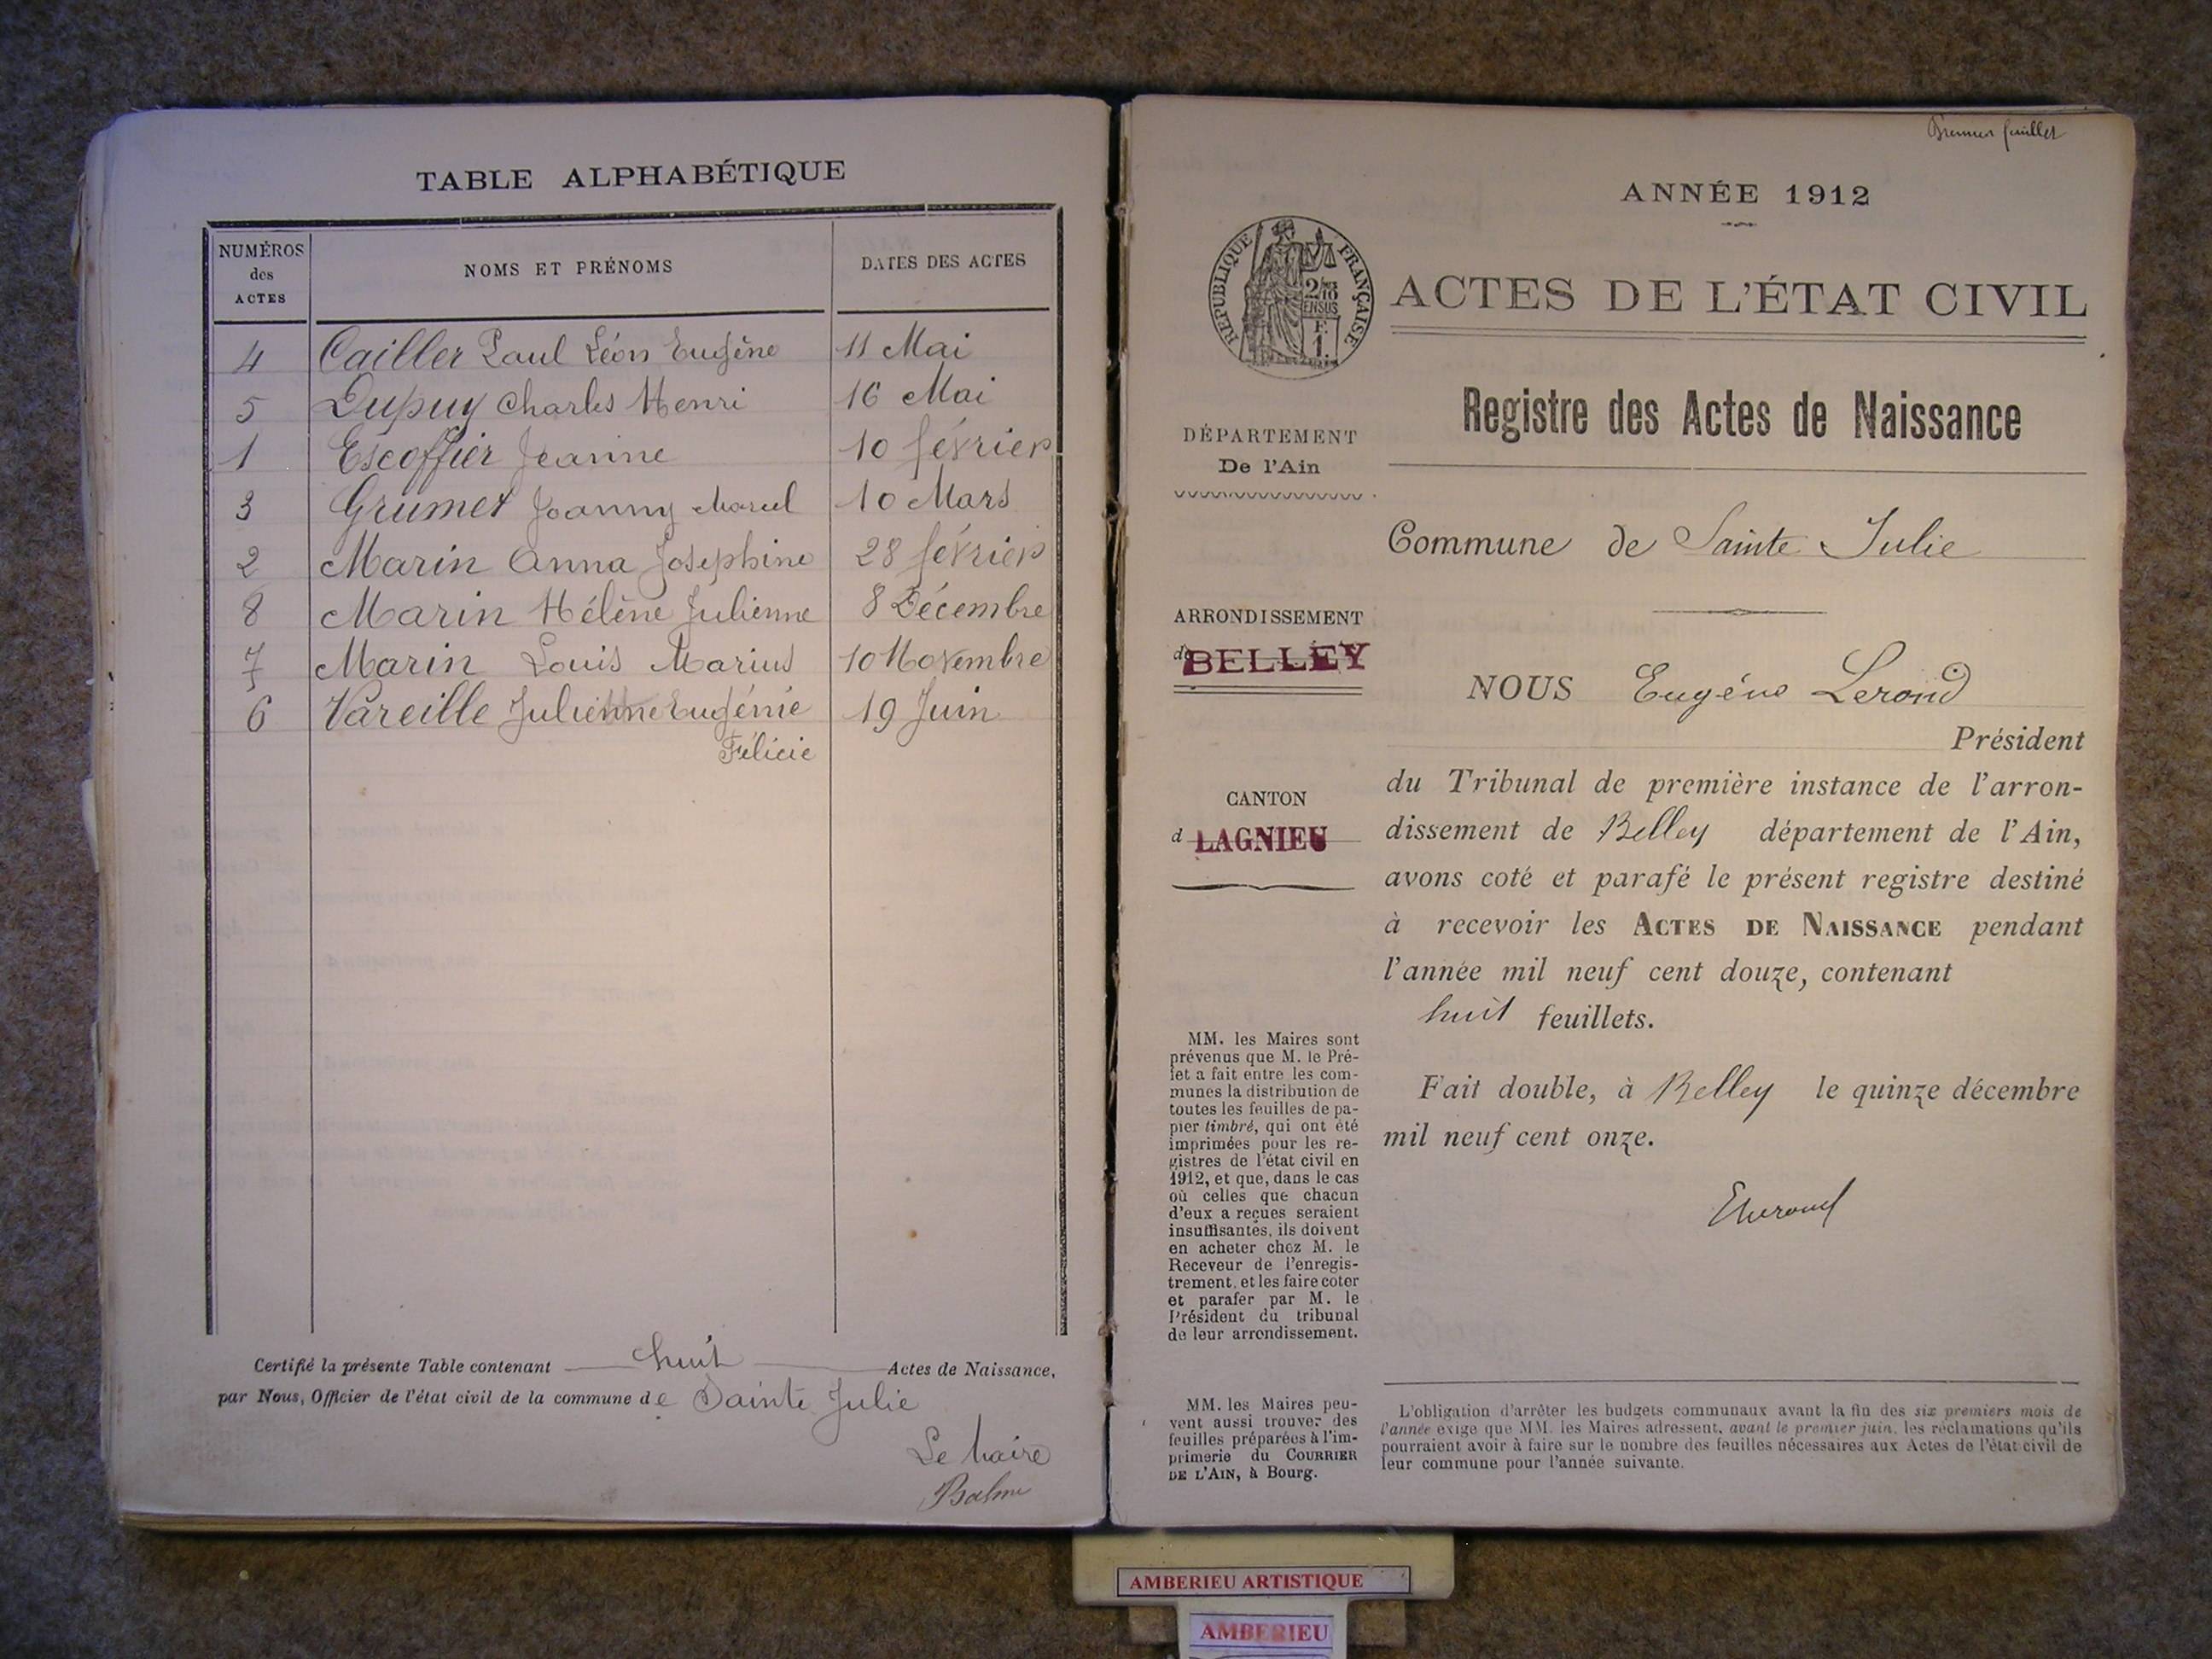 TABLE ALPHABÉTIQUE
NUMÉROS
des
ACTES
NOMS ET PRÉNOMS
DATES DES ACTES
4 Cailler Paul Léon Eugène 11 Mai
5 Dupuy Charles Henri 16 Mai
1 Escoffier Jeanne 10 février
3 Grumet Joanny Marcel 10 Mars
2 Marin Anna Joséphine 28 février
8 Marin Hélène Julienne 8 Décembre
7 Marin Louis Marius 10 Novembre
6 Vareille Julienne Eugénie 19 Juin
Félicie
Certifié la présente Table contenant huit Actes de Naissance,
par Nous, Officier de l'état civil de la commune de Sainte Julie
Le Maire
Balme
Premier feuillet
ANNÉE 1912
RÉPUBLIQUE FRANÇAISE
2/10
EN SUS
F.
1.
ACTES DE L'ÉTAT CIVIL
Registre des Actes de Naissance
DÉPARTEMENT
De l'Ain
Commune de Sainte Julie
ARRONDISSEMENT
de BELLEY
NOUS Eugène Lerond
Président
du Tribunal de première instance de l'arron-
CANTON
d LAGNIEU
dissement de Belley département de l'Ain,
avons coté et parafé le présent registre destiné
à recevoir les ACTES DE NAISSANCE pendant
l'année mil neuf cent douze, contenant
huit feuillets.
Fait double, à Belley le quinze décembre
mil neuf cent onze.
ELerond
MM. les Maires sont
prévenus que M. le Pré-
fet a fait entre les com-
munes la distribution de
toutes les feuilles de pa-
pier timbré, qui ont été
imprimées pour les re-
gistres de l'état civil en
1912, et que, dans le cas
où celles que chacun
d'eux a reçues seraient
insuffisantes, ils doivent
en acheter chez M. le
Receveur de l'enregis-
trement, et les faire coter
et parafer par M. le
Président du tribunal
de leur arrondissement.
MM. les Maires peu-
vent aussi trouver des
feuilles préparées à l'im-
primerie du COURRIER
DE L'AIN, à Bourg.
L'obligation d'arrêter les budgets communaux avant la fin des six premiers mois de
l'année exige que MM. les Maires adressent, avant le premier juin, les réclamations qu'ils
pourraient avoir à faire sur le nombre des feuilles nécessaires aux Actes de l'état civil de
leur commune pour l'année suivante.
AMBERIEU ARTISTIQUE
AMBERIEU